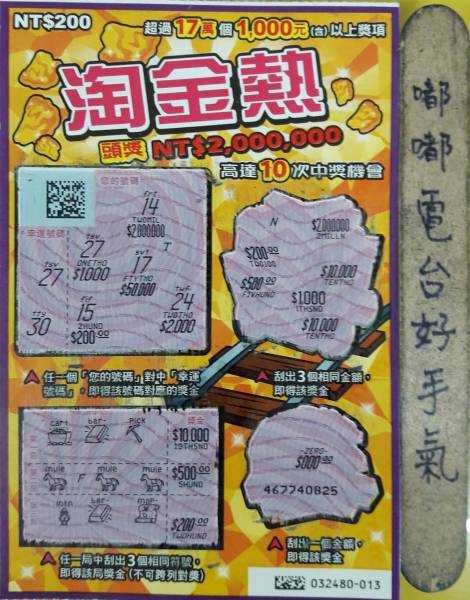 NT$200
超過17萬個1,000元(含)以上獎項
淘金熱
頭獎 NT$2,000,000
高達10次中獎機會
您的號碼
frt
14
TWOMIL
$2,000,000
幸運號碼
tsv
27
tty
30
tsv
27
ONETHO
$1000
svt
17
T
FIYTHO
$50,000
fif
15
2HUND
$200.00
twf
24
TWOTHO
$2,000
任一個「您的號碼」對中「幸運號碼」,即得該號碼對應的獎金
N
$2,000,000
2MILLN
$200.00
$10,000
TENTHO
$500.00
FIVHUND
$1,000
1THSND
$10,000
TENTHO
刮出3個相同金額,
即得該獎金
獎金
cart
bar
PICK
$10,000
10THSND
mule
F
mule
mule
$500.00
5HUND
bar
map
$200.00
TWOHUND
任一局中刮出3個相同符號,
即得該局獎金(不可跨列對獎)
-ZERO-
$000.00
467740825
刮出一個金額,
即得該獎金
032480-013
嘟嘟電台好手氣